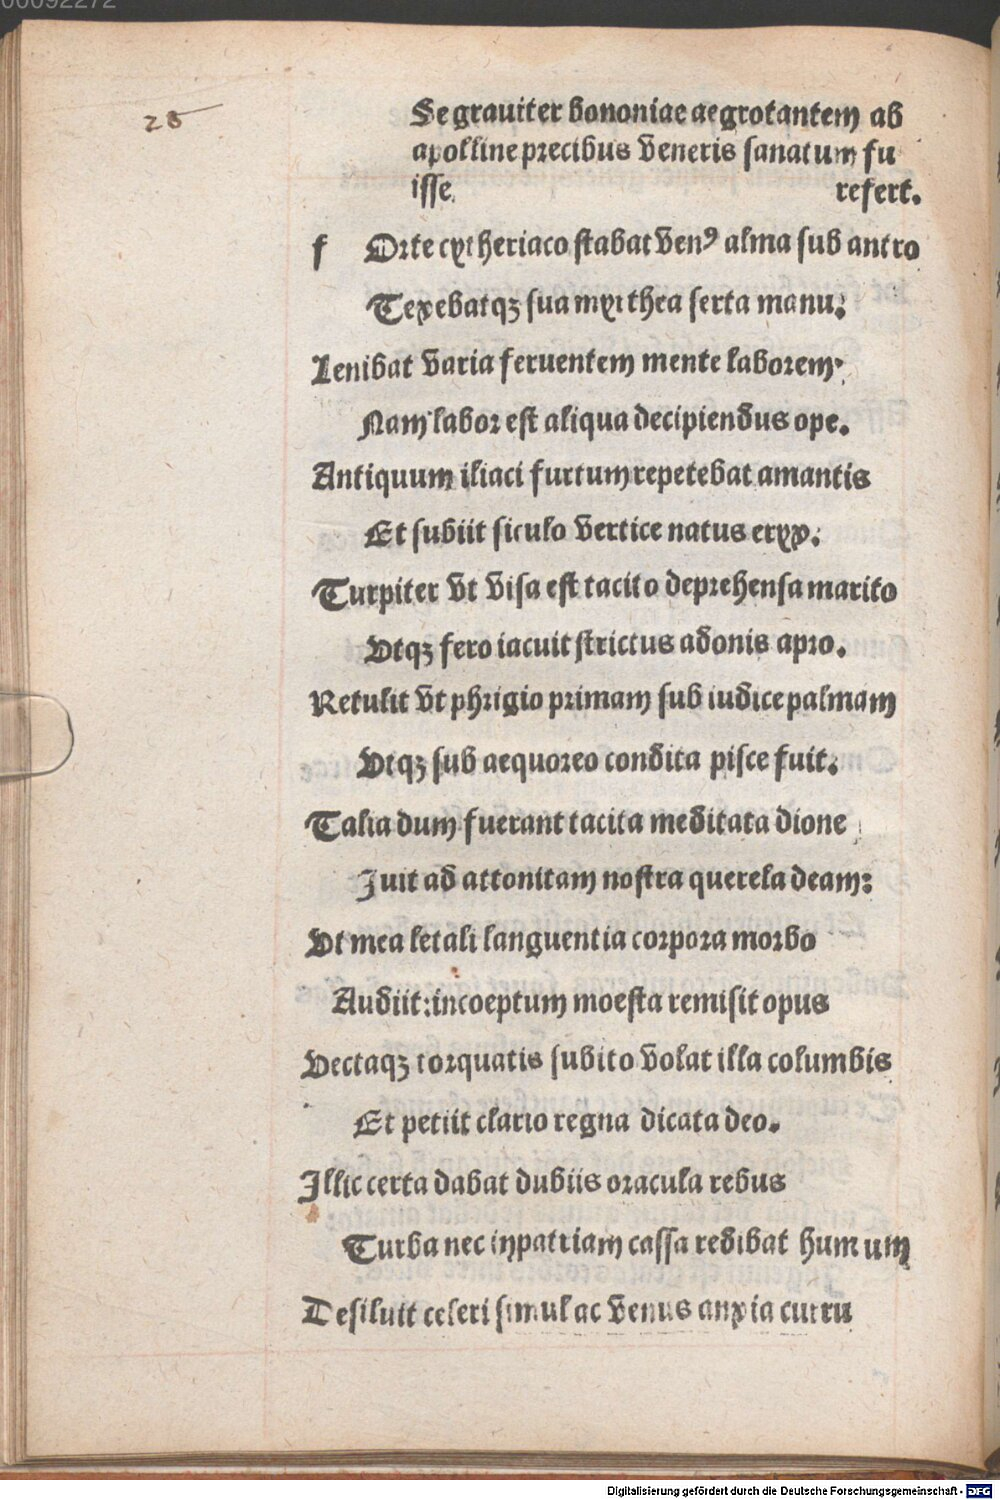 00092272
28
Se grauiter bononiae aegrotantem ab
apolline precibus veneris sanatum fu
isse. refert.
f Orte cytheriaco stabat venꝰ alma sub antro
Texebatqꝫ sua myrthea serta manu:
Lenibat varia feruentem mente laborem·
Nam labor est aliqua decipiendus ope.
Antiquum iliaci furtum repetebat amantis
Et subiit siculo vertice natus eryx.
Turpiter vt visa est tacito deprehensa marito
Vtqꝫ fero iacuit strictus adonis apro.
Retulit vt phrigio primam sub iudice palmam
Vtqꝫ sub aequoreo condita pisce fuit.
Talia dum fuerant tacita meditata dione
Iuit ad attonitam nostra querela deam:
Vt mea letali languentia corpora morbo
Audiit: incoeptum moesta remisit opus
Vectaqꝫ torquatis subito volat illa columbis
Et petiit clario regna dicata deo.
Illic certa dabat dubiis oracula rebus
Turba nec in patriam cassa redibat humum
Desiluit celeri simul ac venus anxia curru
Digitalisierung gefördert durch die Deutsche Forschungsgemeinschaft - DFG